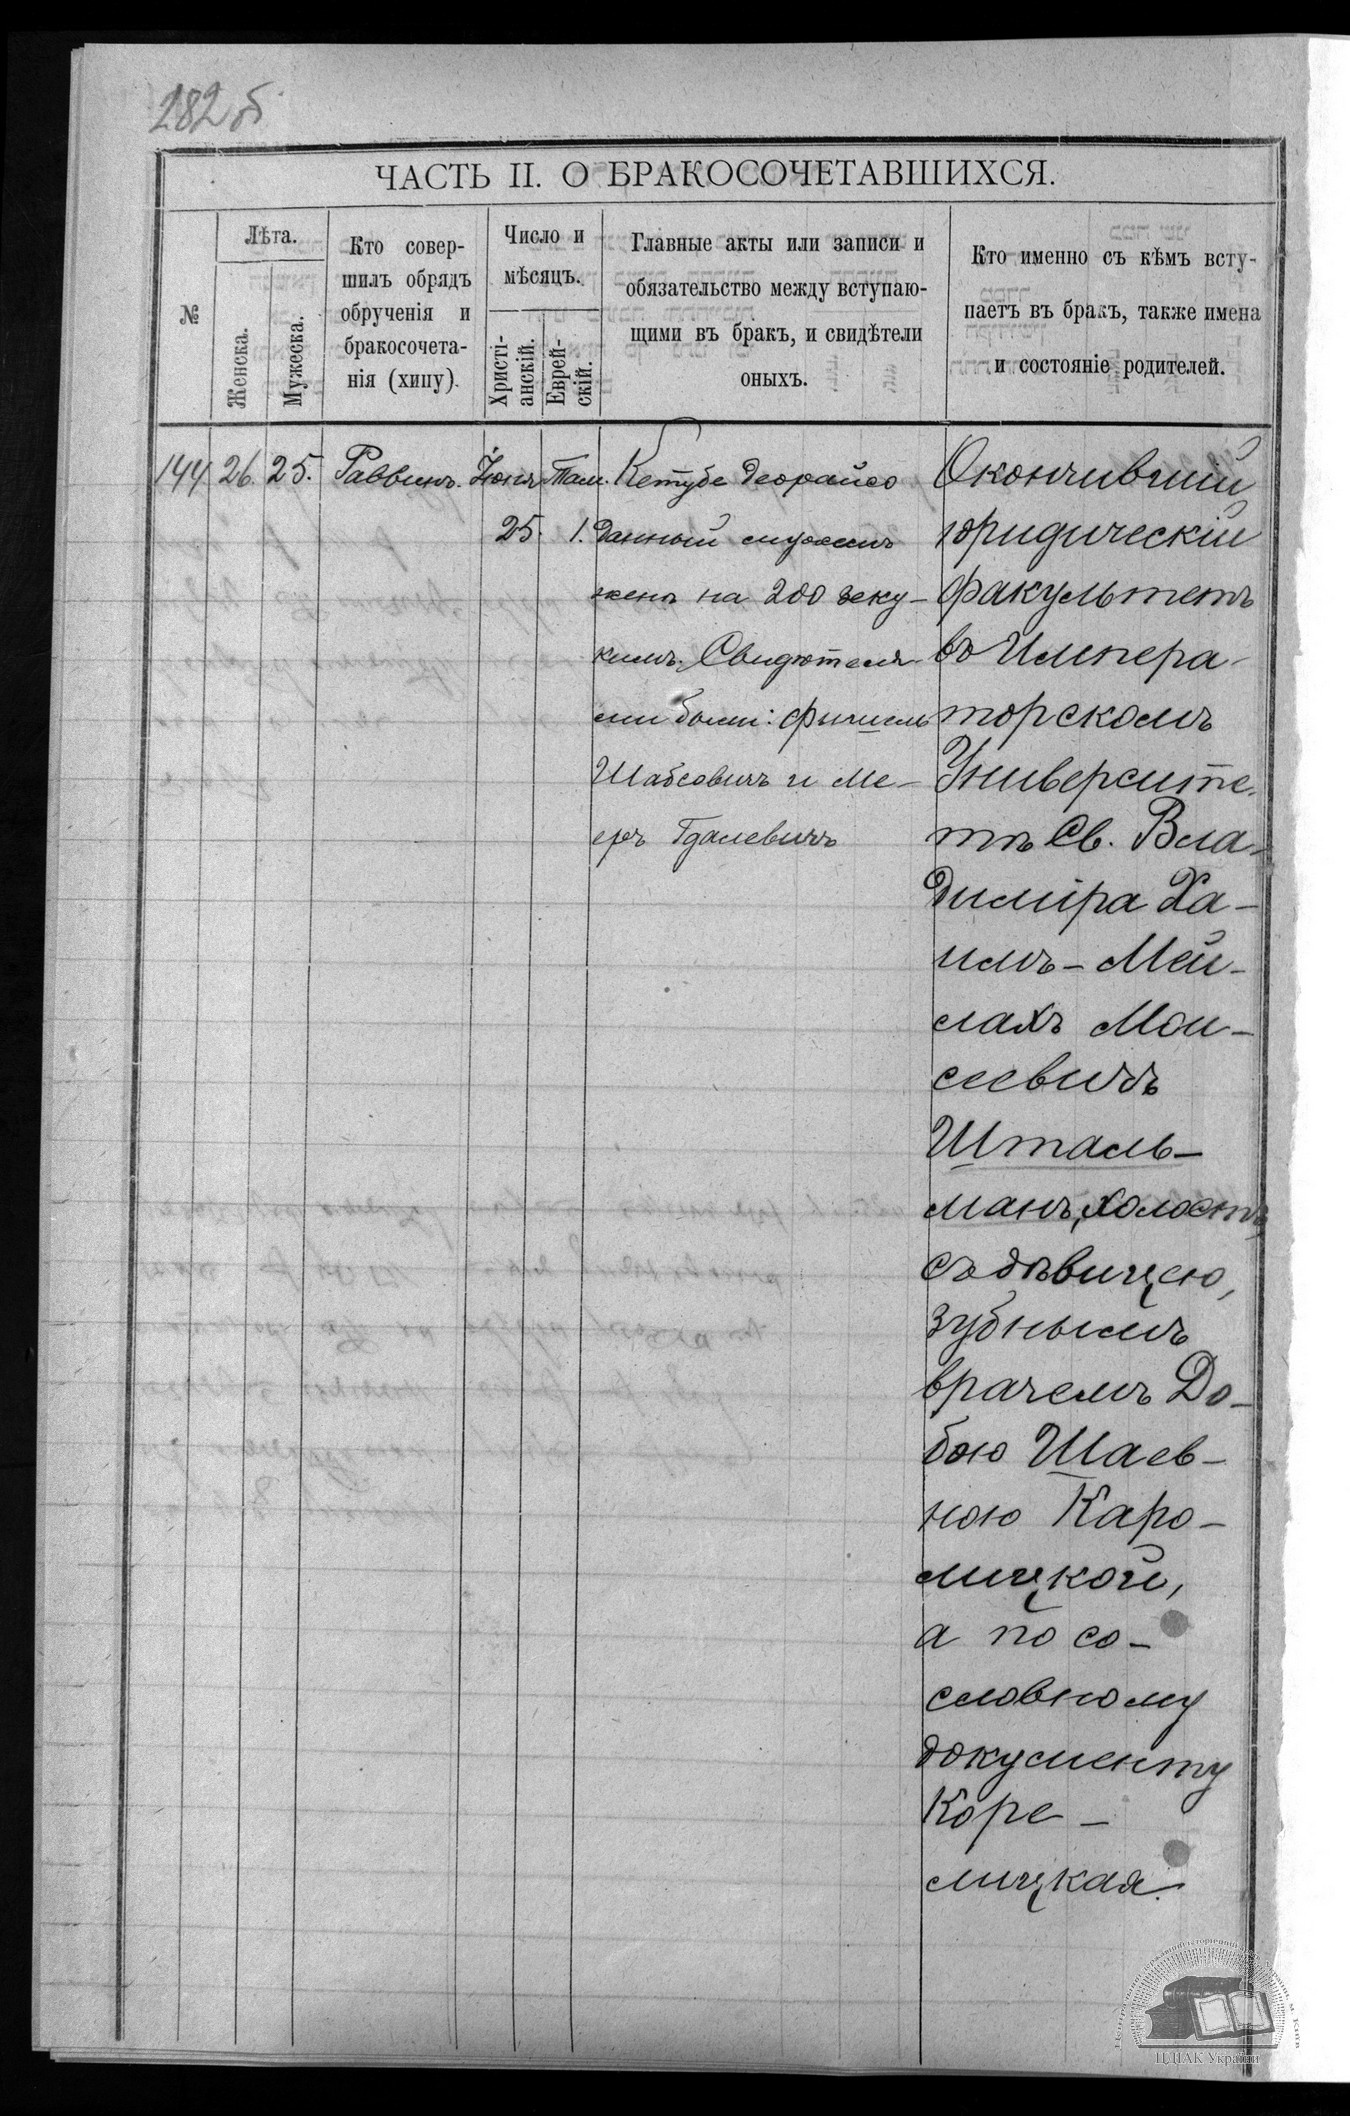 282 б
ЧАСТЬ II. О БРАКОСОЧЕТАВШИХСЯ.
№
Лѣта.
Женска.
Мужеска.
Кто совер-
шилъ обрядъ
обрученія и
бракосочета-
нія (хипу).
Число и
мѣсяцъ.
Христі-
анскій.
Еврей-
скій.
Главные акты или записи и
обязательство между вступаю-
щими въ бракъ, и свидѣтели
оныхъ.
Кто именно съ кѣмъ всту-
паетъ въ бракъ, также имена
и состояніе родителей.
144. 26. 25. Раввинъ. Іюня Там.
25. 1.
Кетубе деорайсо
данный мужемъ
женѣ на 200 зеку-
кимъ. Свидѣтеля-
ми были: Фишель
Шабсовичъ и Ме-
еръ Гдалевичъ
Окончившій
юридическій
факультетъ
въ Импера-
торскомъ
Университе-
тѣ Св. Вла-
диміра Ха-
имъ-Мей-
лахъ Мои-
сеевичъ
Шталь-
манъ, холостъ,
съ дѣвицею,
зубнымъ
врачемъ До-
бою Шаев-
ною Каро-
лицкой,
а по со-
словному
документу
Коре-
лицкая.
ЦДІАК України